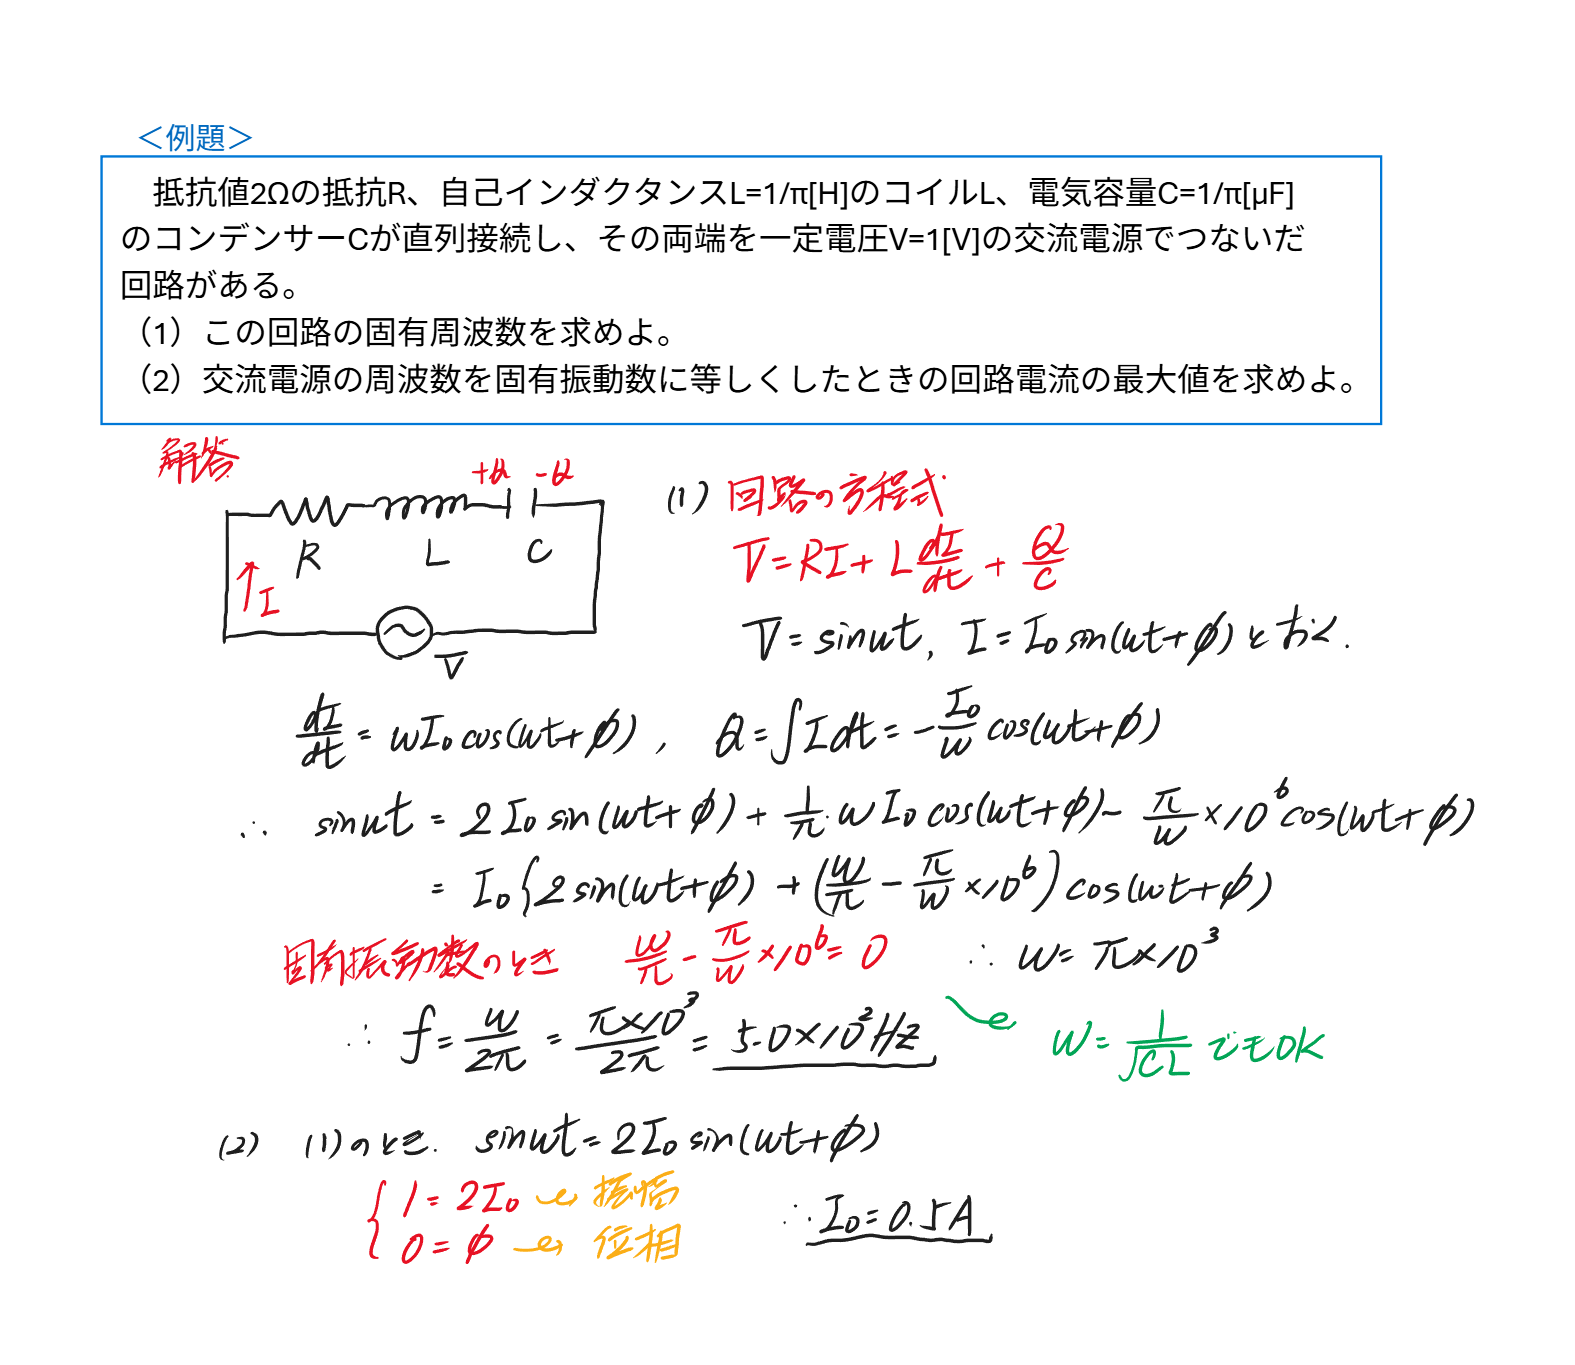 ＜例題＞
抵抗値2Ωの抵抗R、自己インダクタンスL=1/π[H]のコイルL、電気容量C=1/π[μF]
のコンデンサーCが直列接続し、その両端を一定電圧V=1[V]の交流電源でつないだ
回路がある。
（1）この回路の固有周波数を求めよ。
（2）交流電源の周波数を固有振動数に等しくしたときの回路電流の最大値を求めよ。
解答
+Q -Q
R L C
I
V
(1) 回路の方程式
V = RI + L dI/dt + Q/C
V = sinωt, I = I₀ sin(ωt+φ) とおく.
dI/dt = ωI₀ cos(ωt+φ), Q = ∫Idt = -I₀/ω cos(ωt+φ)
∴ sinωt = 2I₀ sin(ωt+φ) + 1/π・ωI₀ cos(ωt+φ) - π/ω ×10⁶ cos(ωt+φ)
= I₀{2 sin(ωt+φ) + (ω/π - π/ω ×10⁶) cos(ωt+φ)
固有振動数のとき ω/π - π/ω ×10⁶ = 0 ∴ ω = π×10³
∴ f = ω/2π = π×10³/2π = 5.0×10²Hz
ω = 1/√CL でもOK
(2) (1)のとき. sinωt = 2I₀ sin(ωt+φ)
{ 1 = 2I₀ 振幅
0 = φ 位相
∴ I₀ = 0.5A